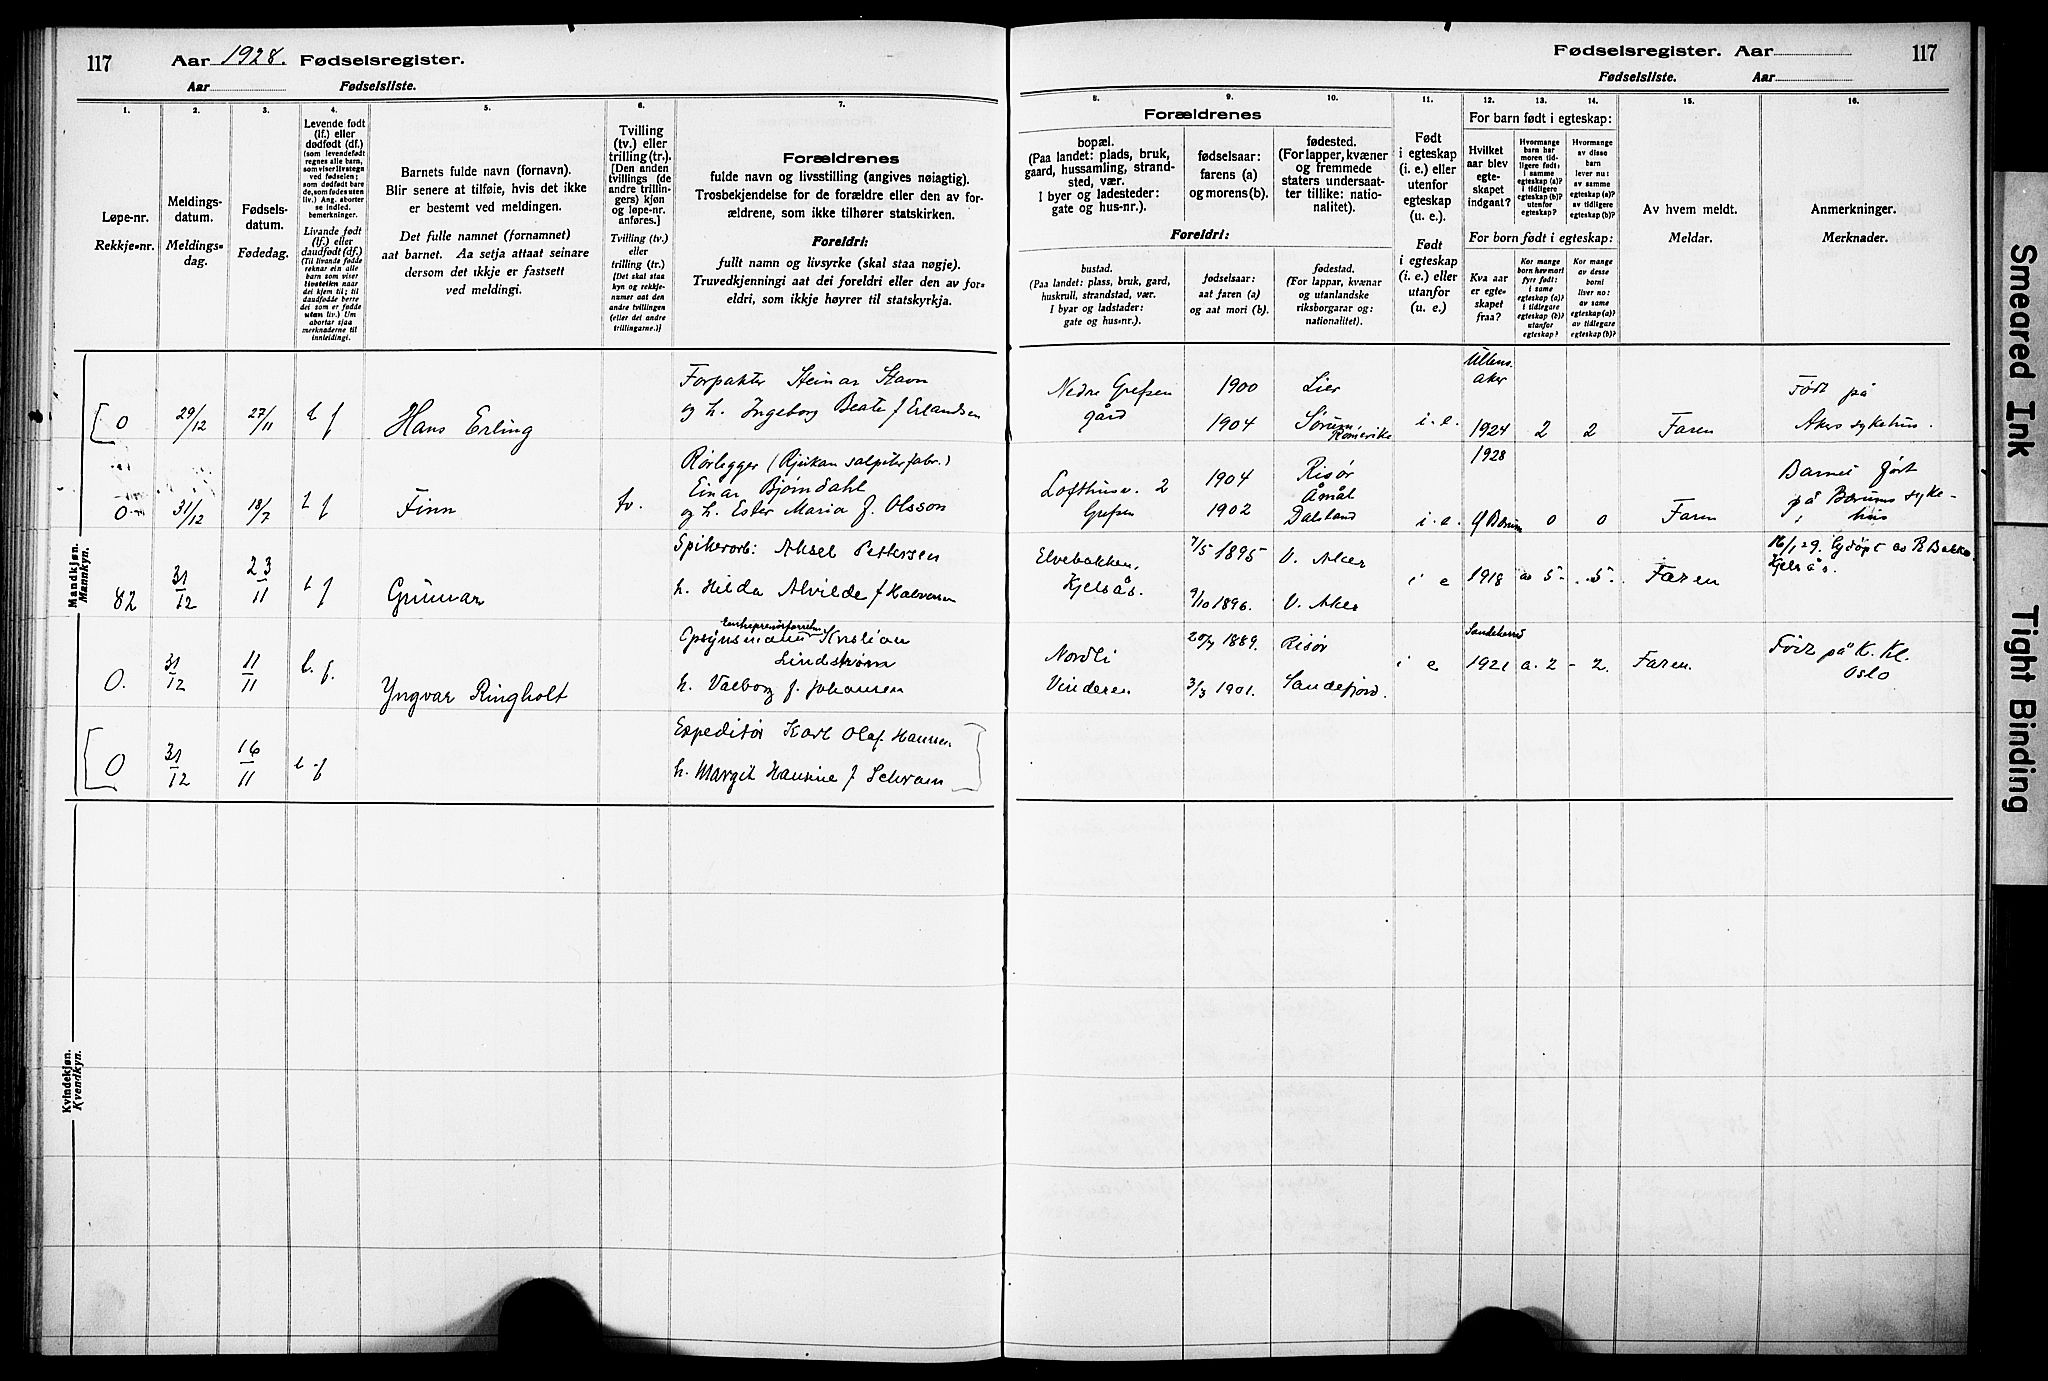 117
Aar 1928. Fødselsregister.
Aar Fødselsliste.
1.
2.
3.
4.
5.
6.
7.
Løpe-nr.
Rekkje-nr.
Meldings-
datum.
Meldings-
dag.
Fødsels-
datum.
Fødedag.
Levende født
(lf.) eller
dødfødt (df.)
(som levendefødt
regnes alle barn,
som viser livstegn
ved fødselen;
som dødfødt bare
de, som fødes uten
liv.) Ang. aborter
se indled.
bemerkninger.
Livande født
(lf.) eller
daudfødt (df.)
(Til livande fødde
reknar ein alle
barn som viser
livsteikn naar
dei kjem til; til
daudfødde berre
dei som er fødde
utan liv.) Um
abortar sjaa
merknaderne til
innleidingi.
Barnets fulde navn (fornavn).
Blir senere at tilføie, hvis det ikke
er bestemt ved meldingen.
Det fulle namnet (fornamnet)
aat barnet. Aa setja attaat seinare
dersom det ikkje er fastsett
ved meldingi.
Tvilling
(tv.) eller
trilling (tr.).
[Den anden
tvillings (de
andre trillin-
gers) kjøn
og løpe-nr.
anføres.]
Tvilling (tv.)
eller
trilling (tr.)
[Det skal staa
kyn og rekkje-
numer aat den
andre tvillingen
(eller dei andre
trillingarne.)]
Forældrenes
fulde navn og livsstilling (angives nøiagtig).
Trosbekjendelse for de forældre eller den av for-
ældrene, som ikke tilhører statskirken.
Foreldri:
fullt namn og livsyrke (skal staa nøgje).
Truvedkjenningi aat dei foreldri eller den av for-
eldri, som ikkje høyrer til statskyrkja.
Mandkjøn.
Mannkyn.
0 29/12 27/11 l f Hans Erling
Forpakter Steinar Stavn
og h. Ingeborg Beate f Erlandsen
0 31/12 18/7 l f Finn tv.
Rørlegger (Rjukan salpeterfabr.)
Einar Bjørndahl
og h. Ester Maria f. Olsson
82 31/12 23/11 l f Gunnar
Spikerarb: Aksel Pettersen
h. Hilda Alvilde f Halvorsen
0. 31/12 11/11 l. f. Yngvar Ringholt
Entreprenørforretn.
Opsynsmann Kristian
Lindstrøm
h. Valborg f. Johansen
0 31/12 16/11 l f
Expeditør Karl Olaf Hansen
h. Margit Hansine f Schram
Kvindekjøn.
Kvendkyn.
Fødselsregister. Aar 117
Fødselsliste. Aar
8.
9.
10.
11.
12.
13.
14.
15.
16.
Forældrenes
bopæl.
(Paa landet: plads, bruk,
gaard, hussamling, strand-
sted, vær.
I byer og ladesteder:
gate og hus-nr.).
fødselsaar:
farens (a)
og morens(b).
fødested.
(For lapper, kvæner
og fremmede
staters undersaat-
ter tillike: natio-
nalitet).
Foreldri:
bustad.
(Paa landet: plass, bruk, gard,
huskrull, strandstad, vær.
I byar og ladstader:
gate og hus-nr.).
fødselsaar:
aat faren (a)
og aat mori (b).
fødestad.
(For lappar, kvænar
og utanlandske
riksborgarar og:
nationalitet).
Født
i egteskap
(i. e.) eller
utenfor
egteskap
(u. e.).
Født
i egteskap
(i. e.) eller
utanfor
egteskap
(u. e.)
For barn født i egteskap:
Hvilket
aar blev
egte-
skapet
indgaat?
Hvormange
barn har
moren tid-
ligere født:
i samme
egteskap (a)?
i tidligere
egteskap (b)?
utenfor
egteskap?
Hvormange
av disse
barn
lever nu:
av samme
egteskap (a)?
av tidligere
egteskap (b)?
For born født i egteskap:
Kva aar
er egte-
skapet
fraa?
Kor mange
born hev mori
fyrr født:
i same
egteskap (a)?
i tidlegare
egteskap (b)?
utanfor
egteskap?
Kor mange
av desse
borni
liver no:
av same
egteskap (a)?
av tidlegare
egteskap (b)?
Av hvem meldt.
Meldar.
Anmerkninger.
Merknader.
Nedre Grefsen
gård
1900 Lier
1904 Sørum, Romerike
i. e.
Ullens-
aker
1924 2 2 Faren
Født på
Akers sykehus.
Lofthusv. 2
Grefsen
1904 Risør
1902 Åmål
Dalsland
i. e.
1928
Ø Bærum 0 0 Faren
Barnet født
på Bærums syke-
hus
Elvebakken,
Kjelsås.
7/5 1895 V. Aker
9/10 1896. V. Aker
i e 1918 a 5 - 5. Faren
16/1 29. Gjdøpt av
Kjelsås.
Nordli
Vinderen
1889. Risør
3/3 1901. Sandefjord.
i e
Sandeherred
1921 a. 2 - 2. Faren.
Født på K. Kl.
Oslo
Smeared Ink
Tight Binding